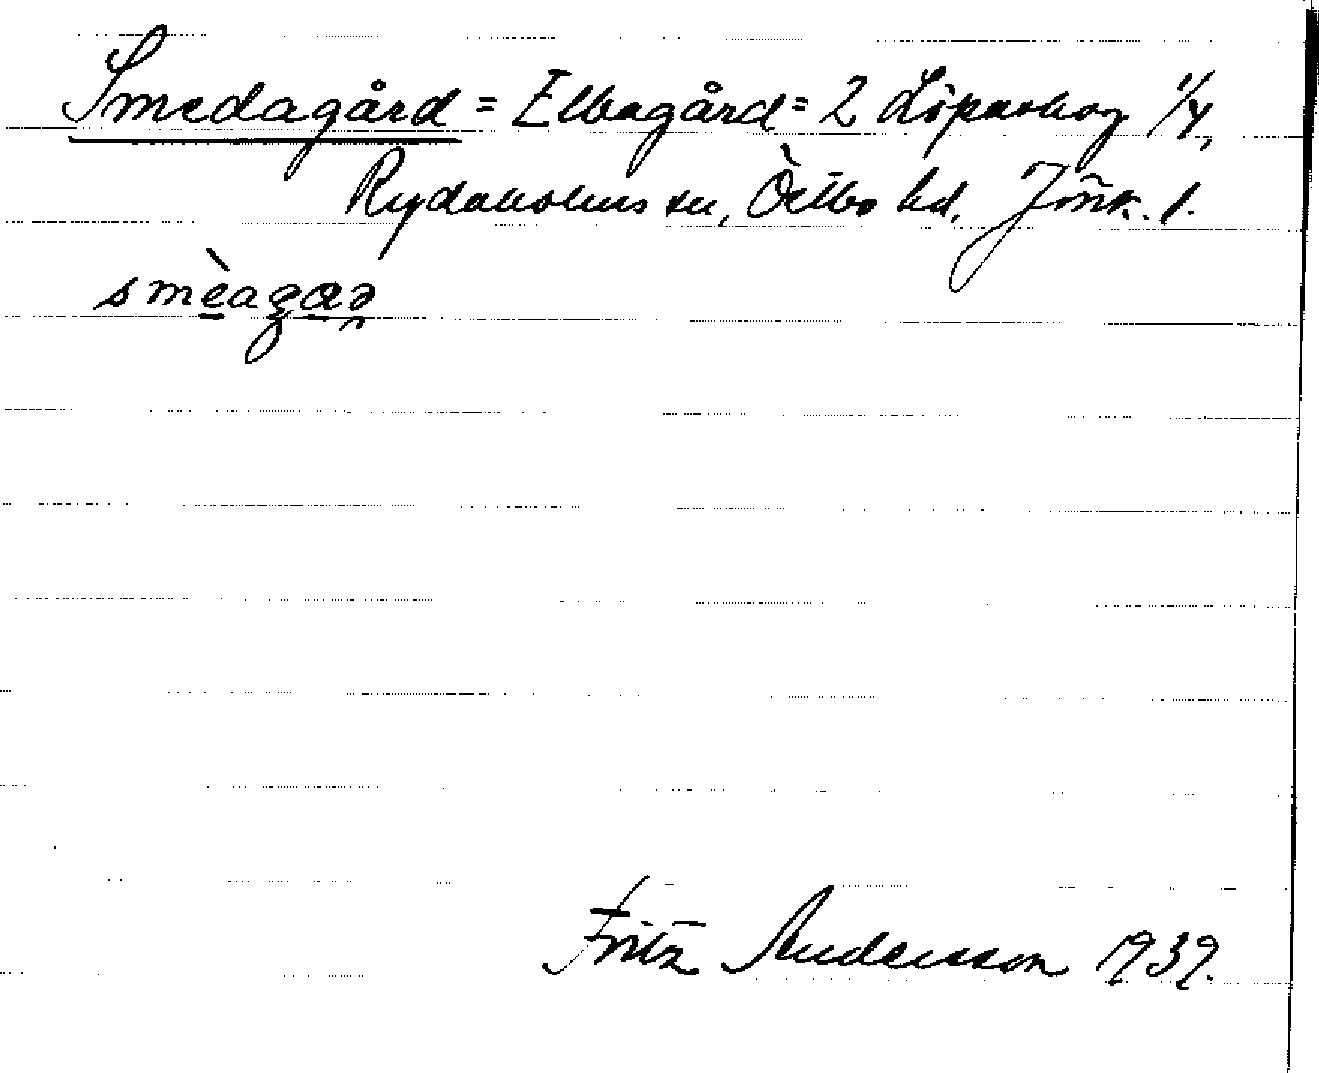 Smedagård = Elbagård = 2 Löpaskog 1/4,
Rydaholms sn, Östbo hd, Jönk. l.
smèagaɹ
Fritz Andersson 1939.